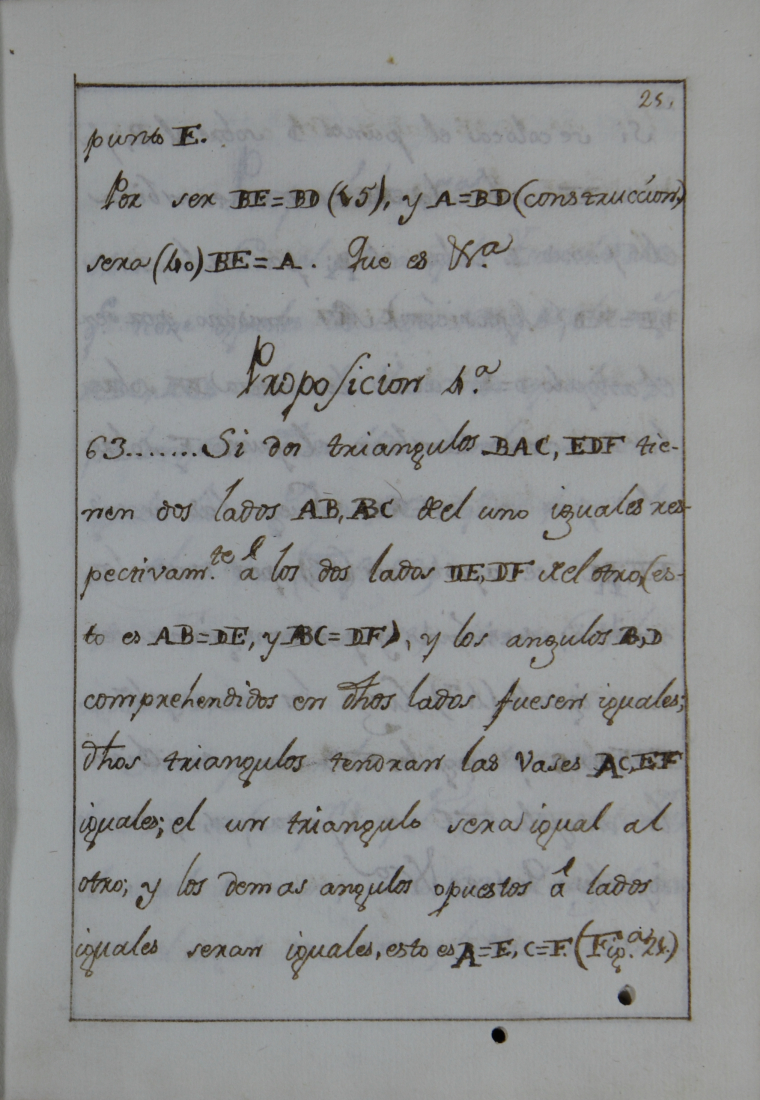 25.
punto E.
Por ser BE=BD (45), y A=BD (construccion)
sera (40) BE=A. Que es &.a
Proposicion 4.a
63.......Si dos triangulos BAC, EDF tie-
nen dos lados AB, BC del uno iguales res-
pectivam.te á los dos lados DE, DF del otro, (es-
to es AB=DE, y BC=DF), y los angulos B, D
comprehendidos en dhos lados fuesen iguales;
dhos triangulos tendran las vases AC, EF
iguales; el un triangulo sera igual al
otro; y los demas angulos opuestos á lados
iguales seran iguales, esto es A=E, C=F. (Fig.a 21.)